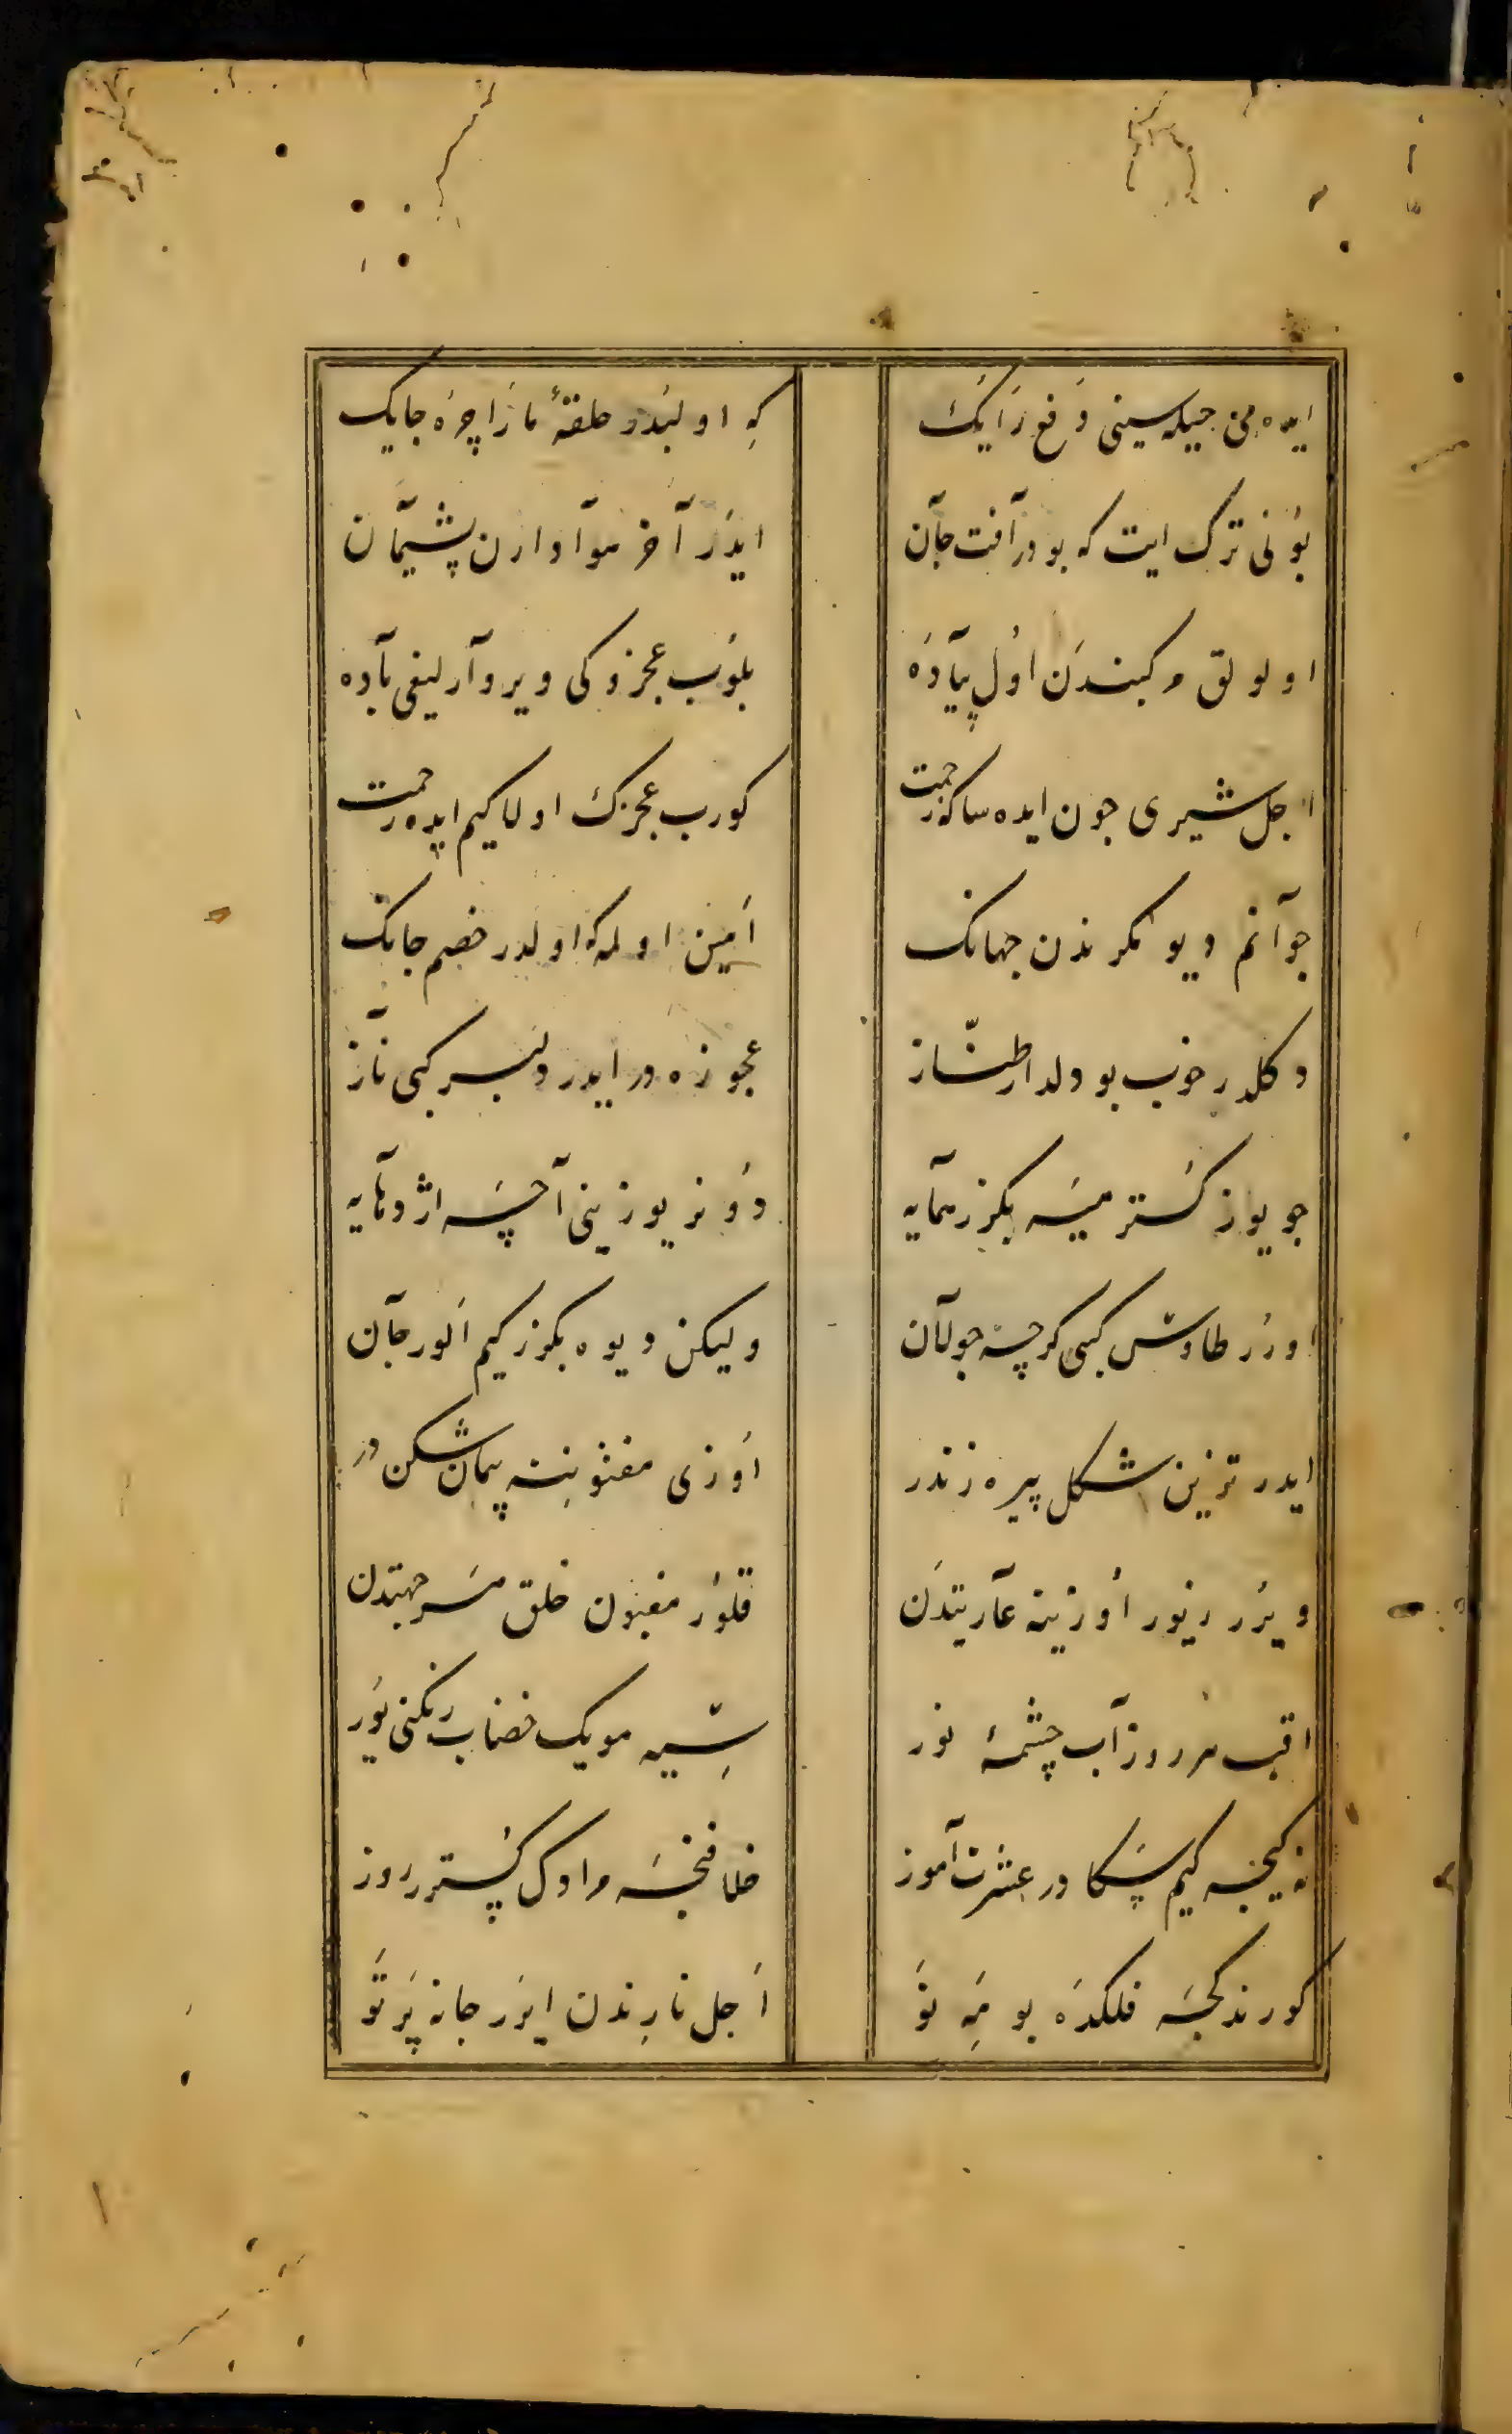 ایده من حیله سینی دفع رایک
که اولبدر حلقهٔ مار اچره جایک
بونی ترک ایت که بودر آفت جان
ایدر آخر هوادارن پشیمان
اولولق مرکبندن اول پیاده
بلوب عجزوکی ویر وارلیغی باده
اجل شیری چون ایده ساکه رحمت
کورب عجزک اولا کیم ایده رحمت
جوانم دیو مکرندن جهانک
امین اولمه که اولدر خصم جانک
دکلدر خوب بو دلدار طناز
عجوزه در ایدر دلبر کبی ناز
چو یوز کسترمیه بکزر همایه
دونر یوزینی آچسه اژدهایه
اورر طاوس کبی کرچه جولان
ولیکن دیوه بکزر کیم الور جان
ایدر تزیین شکل پیره زندر
اوزی مفتونینه پیمان شکن در
ویرر زیور اوزینه عاریتدن
قلور مغبون خلق هر جهتدن
اقب هر روز آب چشمهٔ نور
سیه مویک خضاب رنکنی یور
نه کیجه کیم سکا در عشرت آموز
خلافنجه مرادک کستر روز
کورندکجه فلکده بو مه نو
اجل نارندن ایرر جانه پرتو